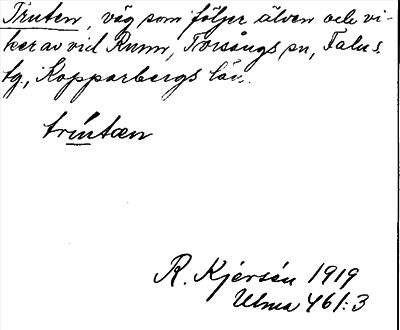 Truten, väg som följer älven och vi-
ker av vid Runn, Torsångs sn, Falu s.
tg., Kopparbergs län.
trùtæn
R. Kjersén 1919
Ulma 461:3